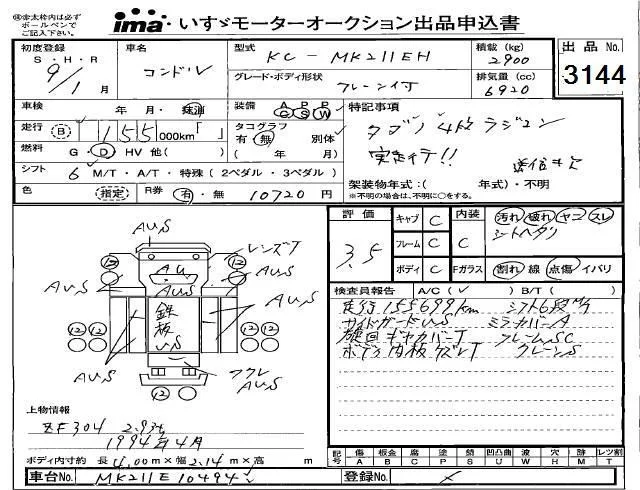 ※赤太枠内は必ず
ボールペンで
ご記入下さい。
ima いすゞモーターオークション出品申込書
初度登録 車名 型式 積載 (kg) 出品 No.
S・H・R
9/1 月 コンドル KC-MK211EH 2900
グレード・ボディ形状 排気量 (cc)
クレーン付 6920 3144
車検 年 月・抹消 装備 A P P C S W 特記事項
走行 B 155 000km「 」 タコグラフ 有 無 別体
タダノ 4段ラジコン
燃料 G・D HV 他( ) ( 年 月)
シフト 6 M/T・A/T・特殊 (2ペダル・3ペダル)
架装物年式:( 年式)・不明
色 指定 R券 有・無 10720 円
※不明の場合は、不明に○をする。
評価 3.5
キャブ C 内装 C 汚れ 破れ ヤニ スレ
シートヘタリ
フレーム C C
ボディ C Fガラス 割れ 線 点傷 イバリ
検査員報告 A/C (✓) B/T ( )
走行155699km シフト6段M/T
サイドガードUS ミラーカバーA
フレームSC
クレーンS
AUS
レンズT
AUS
AU
AUS
AUS
鉄板
US
AUS
AUS
12
フクレ
AUS
上物情報
ZF304 2.93t
1994年4月
ボディ内寸約 長 4.00m×幅 2.14m×高 m
記号 傷 A 板金 B 腐 C 塗 P 錆 S 凹凸曲 U 波 W 穴 H 隊 M レツ割 T
車台No. MK211E10494 登録No.